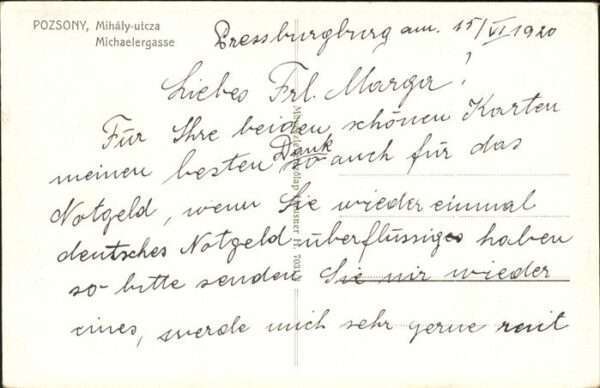 POZSONY, Mihály-utcza
Michaelergasse
Pressburgburg am. 15/VI 1920
Liebes Frl. Marga!
Für Ihre beiden schönen Karten
meinen besten Dank so auch für das
Notgeld, wenn Sie wieder einmal
deutsches Notgeld überflüssiges haben
so bitte senden Sie mir wieder
eines, werde mich sehr gerne